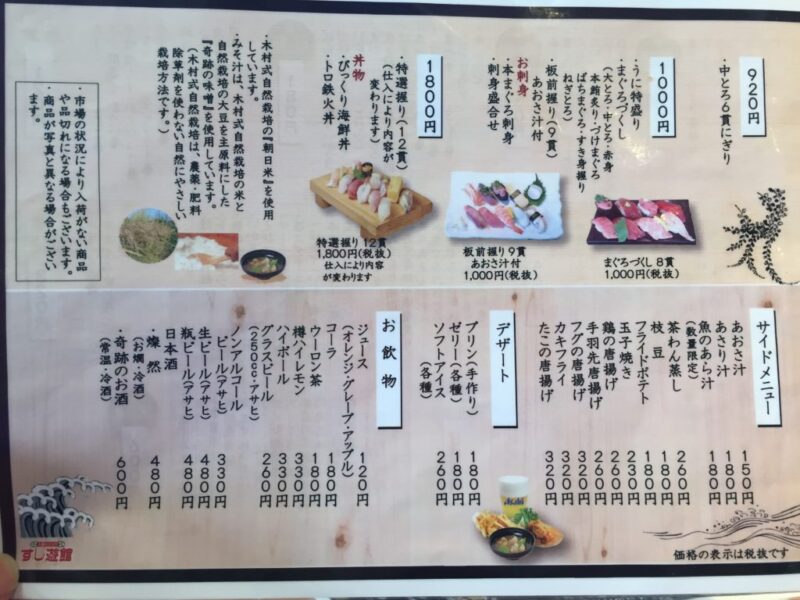 920円
・中とろ6貫にぎり
1000円
・うに特盛り
・まぐろづくし
(大とろ・中とろ・赤身
本鮪炙り・づけまぐろ
ばちまぐろ・すき身握り
ねぎとろ)
・板前握り(9貫)
あおさ汁付
お刺身
・本まぐろ刺身
・刺身盛合せ
1800円
・特選握り(12貫)
(仕入により内容が
変わります)
丼物
・びっくり海鮮丼
・トロ鉄火丼
・木村式自然栽培の『朝日米』を使用
しています。
・みそ汁は、木村式自然栽培の米と
自然栽培の大豆を主原料にした
『奇跡の味噌』を使用しています。
(木村式自然栽培は、農薬・肥料
除草剤を使わない自然にやさしい
栽培方法です。)
・市場の状況により入荷がない商品
や品切れになる場合もございます。
・商品が写真と異なる場合がござい
ます。
まぐろづくし 8貫
1,000円(税抜)
板前握り9貫
あおさ汁付
1,000円(税抜)
特選握り12貫
1,800円(税抜)
仕入により内容
が変わります
サイドメニュー
あおさ汁 150円
あさり汁 180円
魚のあら汁 180円
(数量限定)
茶わん蒸し 260円
枝豆 180円
フライドポテト 180円
玉子焼き 230円
鶏の唐揚げ 260円
手羽先唐揚げ 260円
フグの唐揚げ 320円
カキフライ 320円
たこの唐揚げ 320円
デザート
プリン(手作り) 180円
ゼリー(各種) 180円
ソフトアイス(各種) 260円
お飲物
ジュース 120円
(オレンジ・グレープ・アップル)
コーラ 180円
ウーロン茶 180円
樽ハイレモン 330円
ハイボール 330円
グラスビール 260円
(250cc・アサヒ)
ノンアルコール
ビール(アサヒ) 330円
生ビール(アサヒ) 480円
瓶ビール(アサヒ) 480円
日本酒
・燦然 480円
(お燗・冷酒)
・奇跡のお酒 600円
(常温・冷酒)
Asahi
すし遊館
価格の表示は税抜です